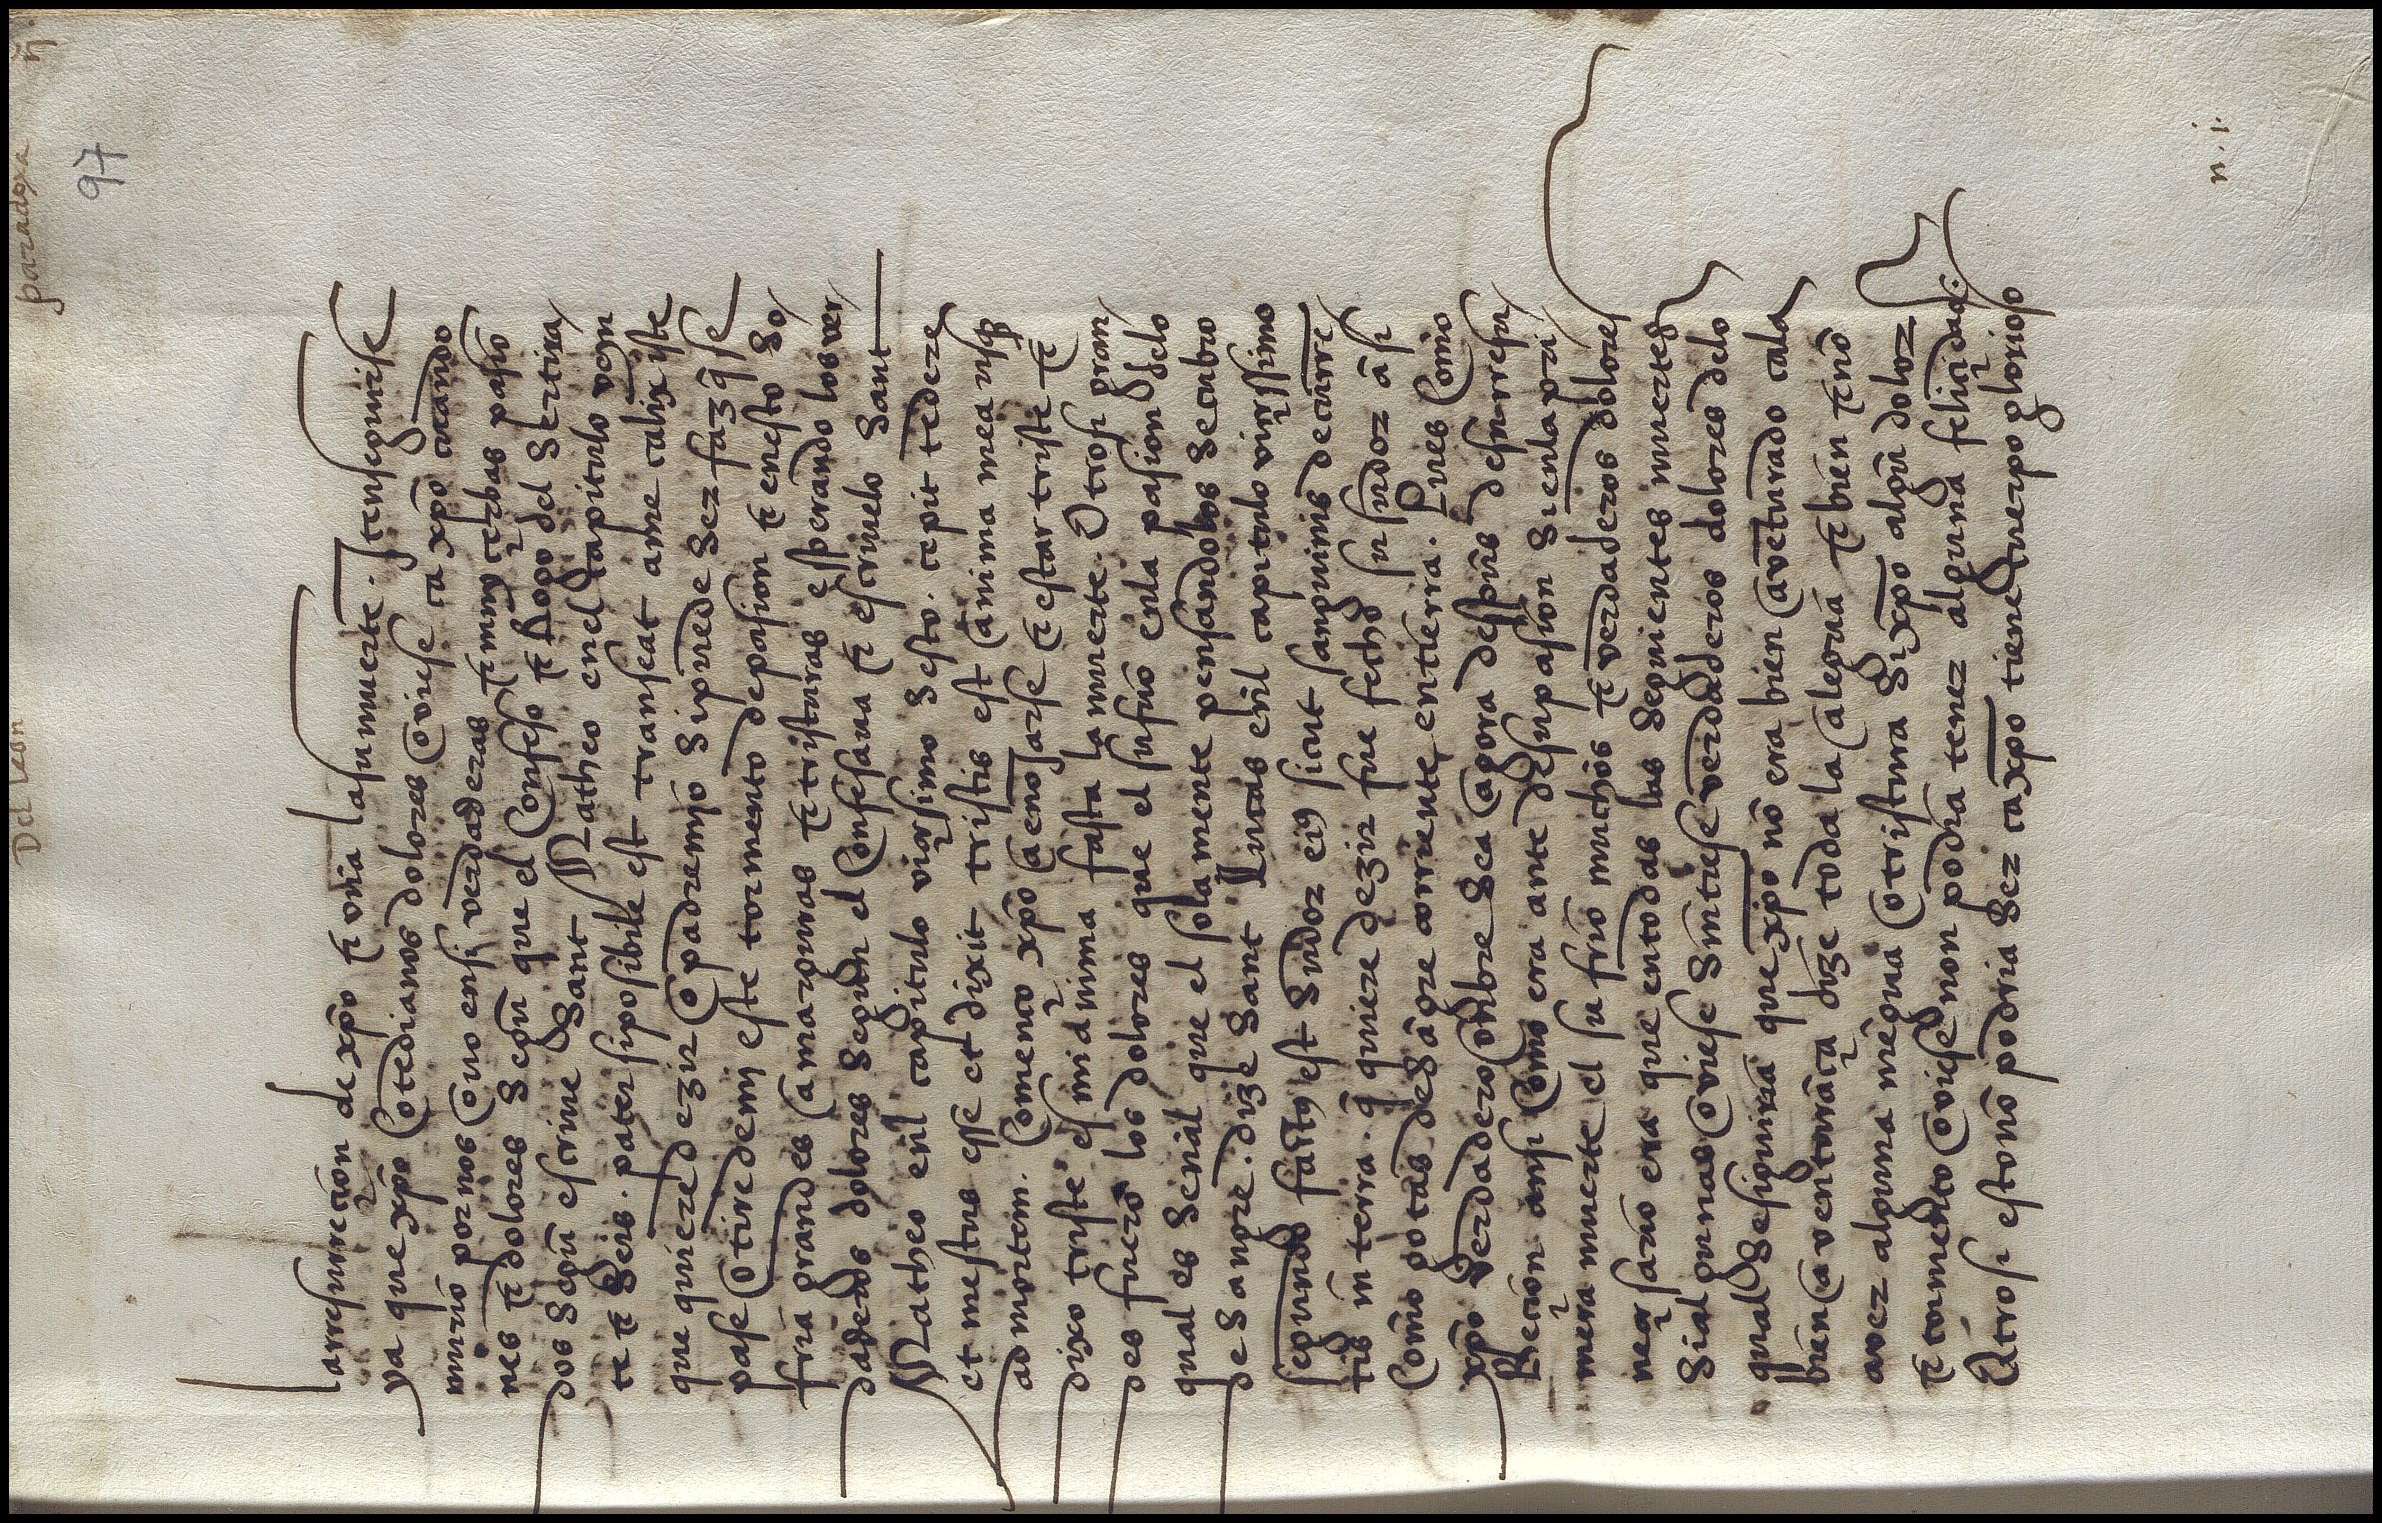 Del leon paradoxa ii
97
la rresureciõn de xp̃o τ̃ ovia la su muerte. Iten seguirse
ya que xp̃o cotedianos dolores oviese ca xp̃o cuando
murio por nos ovo en si verdaderas τ̃ muy acerbas pasio
nes τ̃ dolores segũ que el confeso τ̃ Rogo del se tira
dos segũ escrive sant Matheo en el capitulo veyn
te τ̃ seis. pater si posibile est transeat a me calix iste
que quiere dezir o padre myo si puede ser faz q̃ se
pase o tire de my este tormento de pasion τ̃ en esto so
fria grandes amarguras τ̃ tristuras esperando los ver
daderos dolores segun el confesava τ̃ escrivelo sant
Matheo enl capitulo viçessimo sesto. cepit tedere
et mestus esse et dixit tristis est anima mea usq̃
ad mortem. començo xp̃o a enojarse τ̃ estar triste τ̃
dixo triste es mi anima fasta la muerte. Otrosi gran
des fuerõ los dolores que el sufrio en la pasion delo
qual es señal que el sola mente pensandolos se cubrio
de sangre. dize sant Lucas enl capitulo viçessimo
segundo factus est sudor eius sicut sanguinis decurre
tis in terra. q̃ quiere dezir fue fecho su sudor asi
como gotas de sãgre corriente en tierra. Pues como
xp̃o verdadero onbre sea agora despues de su rresu
Reciõn ansi como era ante de su pasion si en la pri
mera muerte el sufrio muchos τ̃ verdaderos dolores
neçesario era que en todas las seguientes muertes
si algunas oviese sintiese verdaderos dolores delo
qual se siguiria que xp̃o nõ era bien aventurado ca la
bien aventurãça dize toda la alegria τ̃ bien τ̃ nõ
aver alguna mẽgua o tristura si xp̃o algũ dolor
τ̃ tormento oviese non podria tener alguna feliçidad.
Otrosi esto nõ podria ser ca xp̃o tiene cuerpo glorioso
n. i.